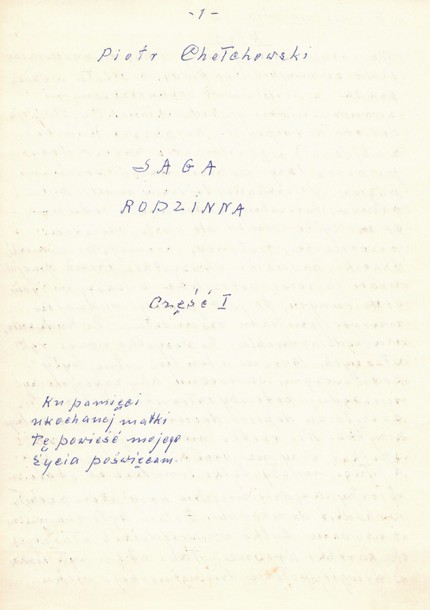 -1-
Piotr Chełchowski
SAGA
RODZINNA
Część I
Ku pamięci
ukochanej matki
Tę powieść mojego
życia poświęcam.